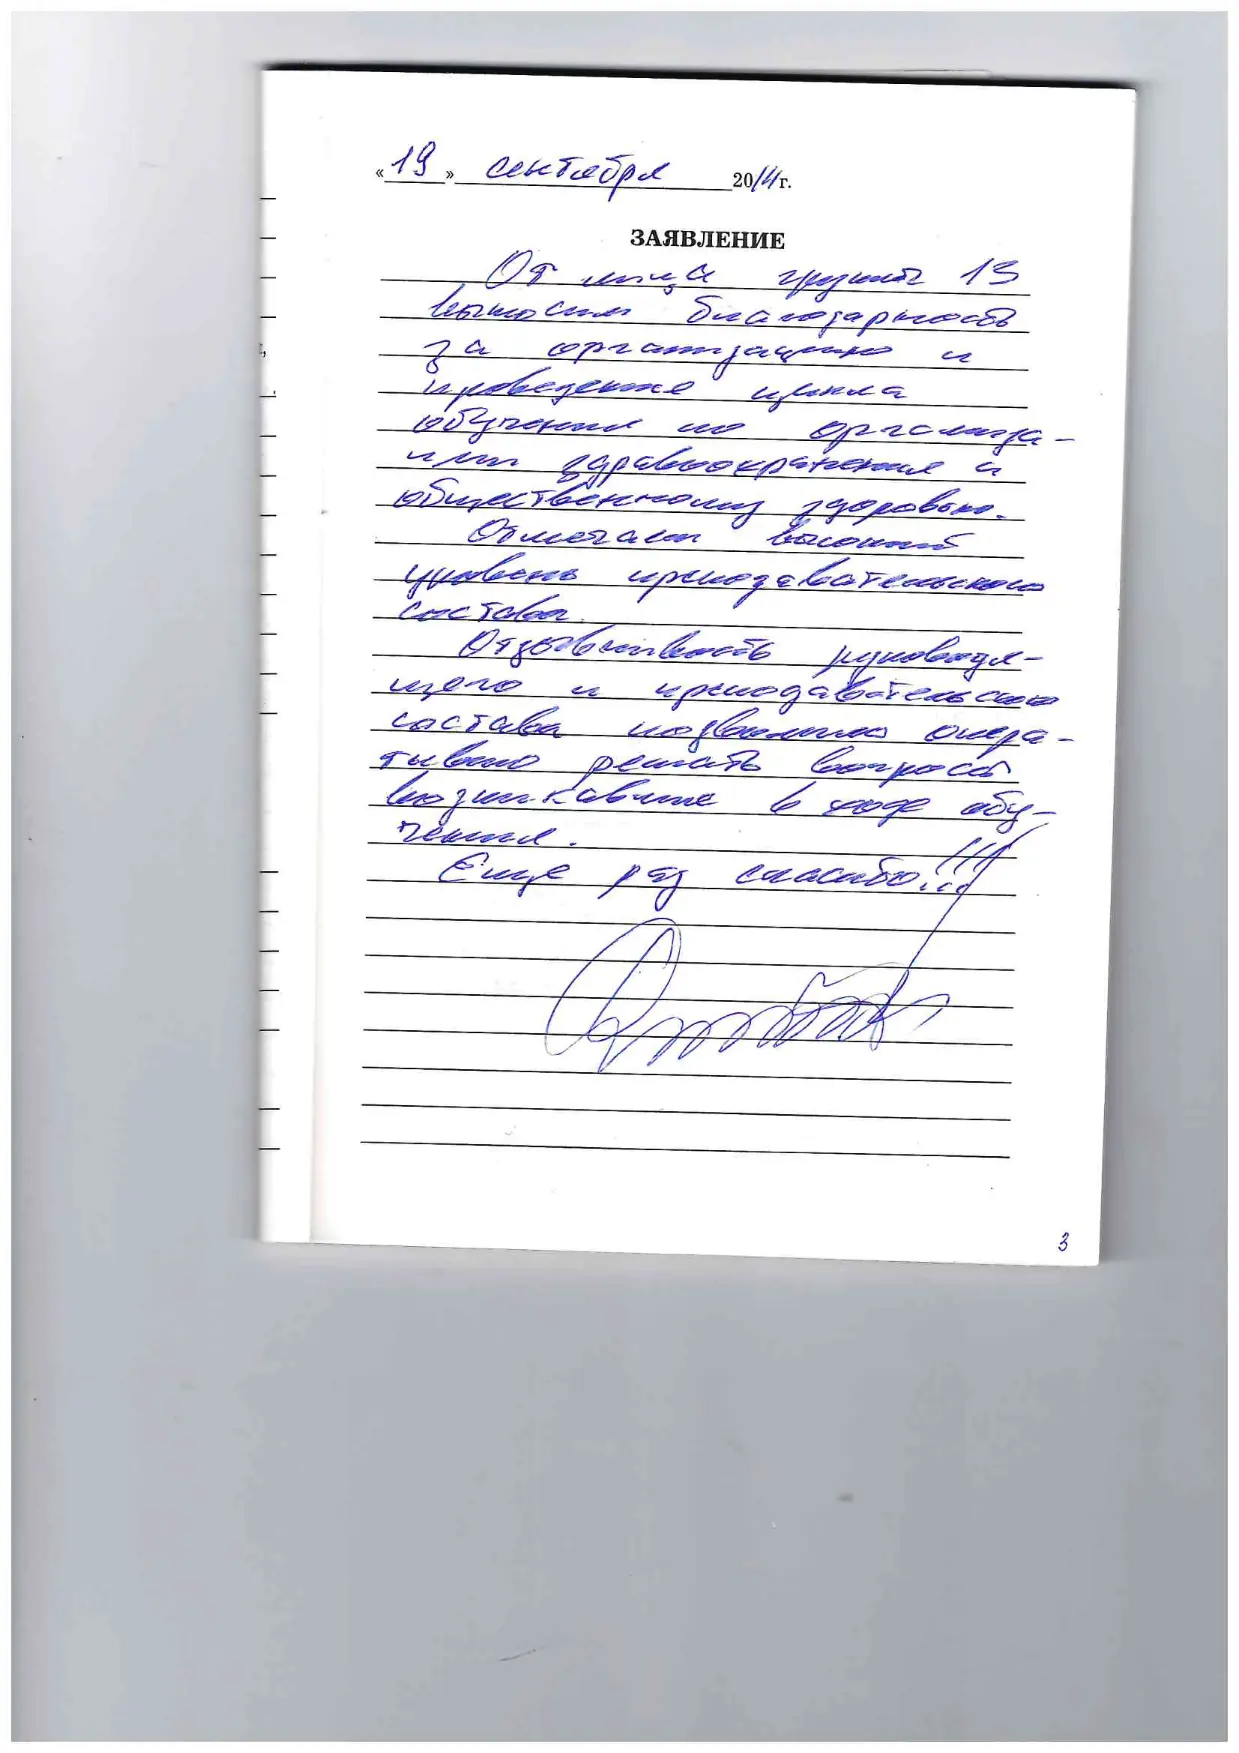 «19» сентября 2014 г.
ЗАЯВЛЕНИЕ
От лица группы 13
выносим благодарность
за организацию и
проведение цикла
обучения по организа-
ции здравоохранения и
общественному здоровью.
Отмечаем высокий
уровень преподавательского
состава.
Отзывчивость руководя-
щего и преподавательского
состава позволило опера-
тивно решать вопросы
возникавшие в ходе обу-
чения.
Еще раз спасибо!!!
3